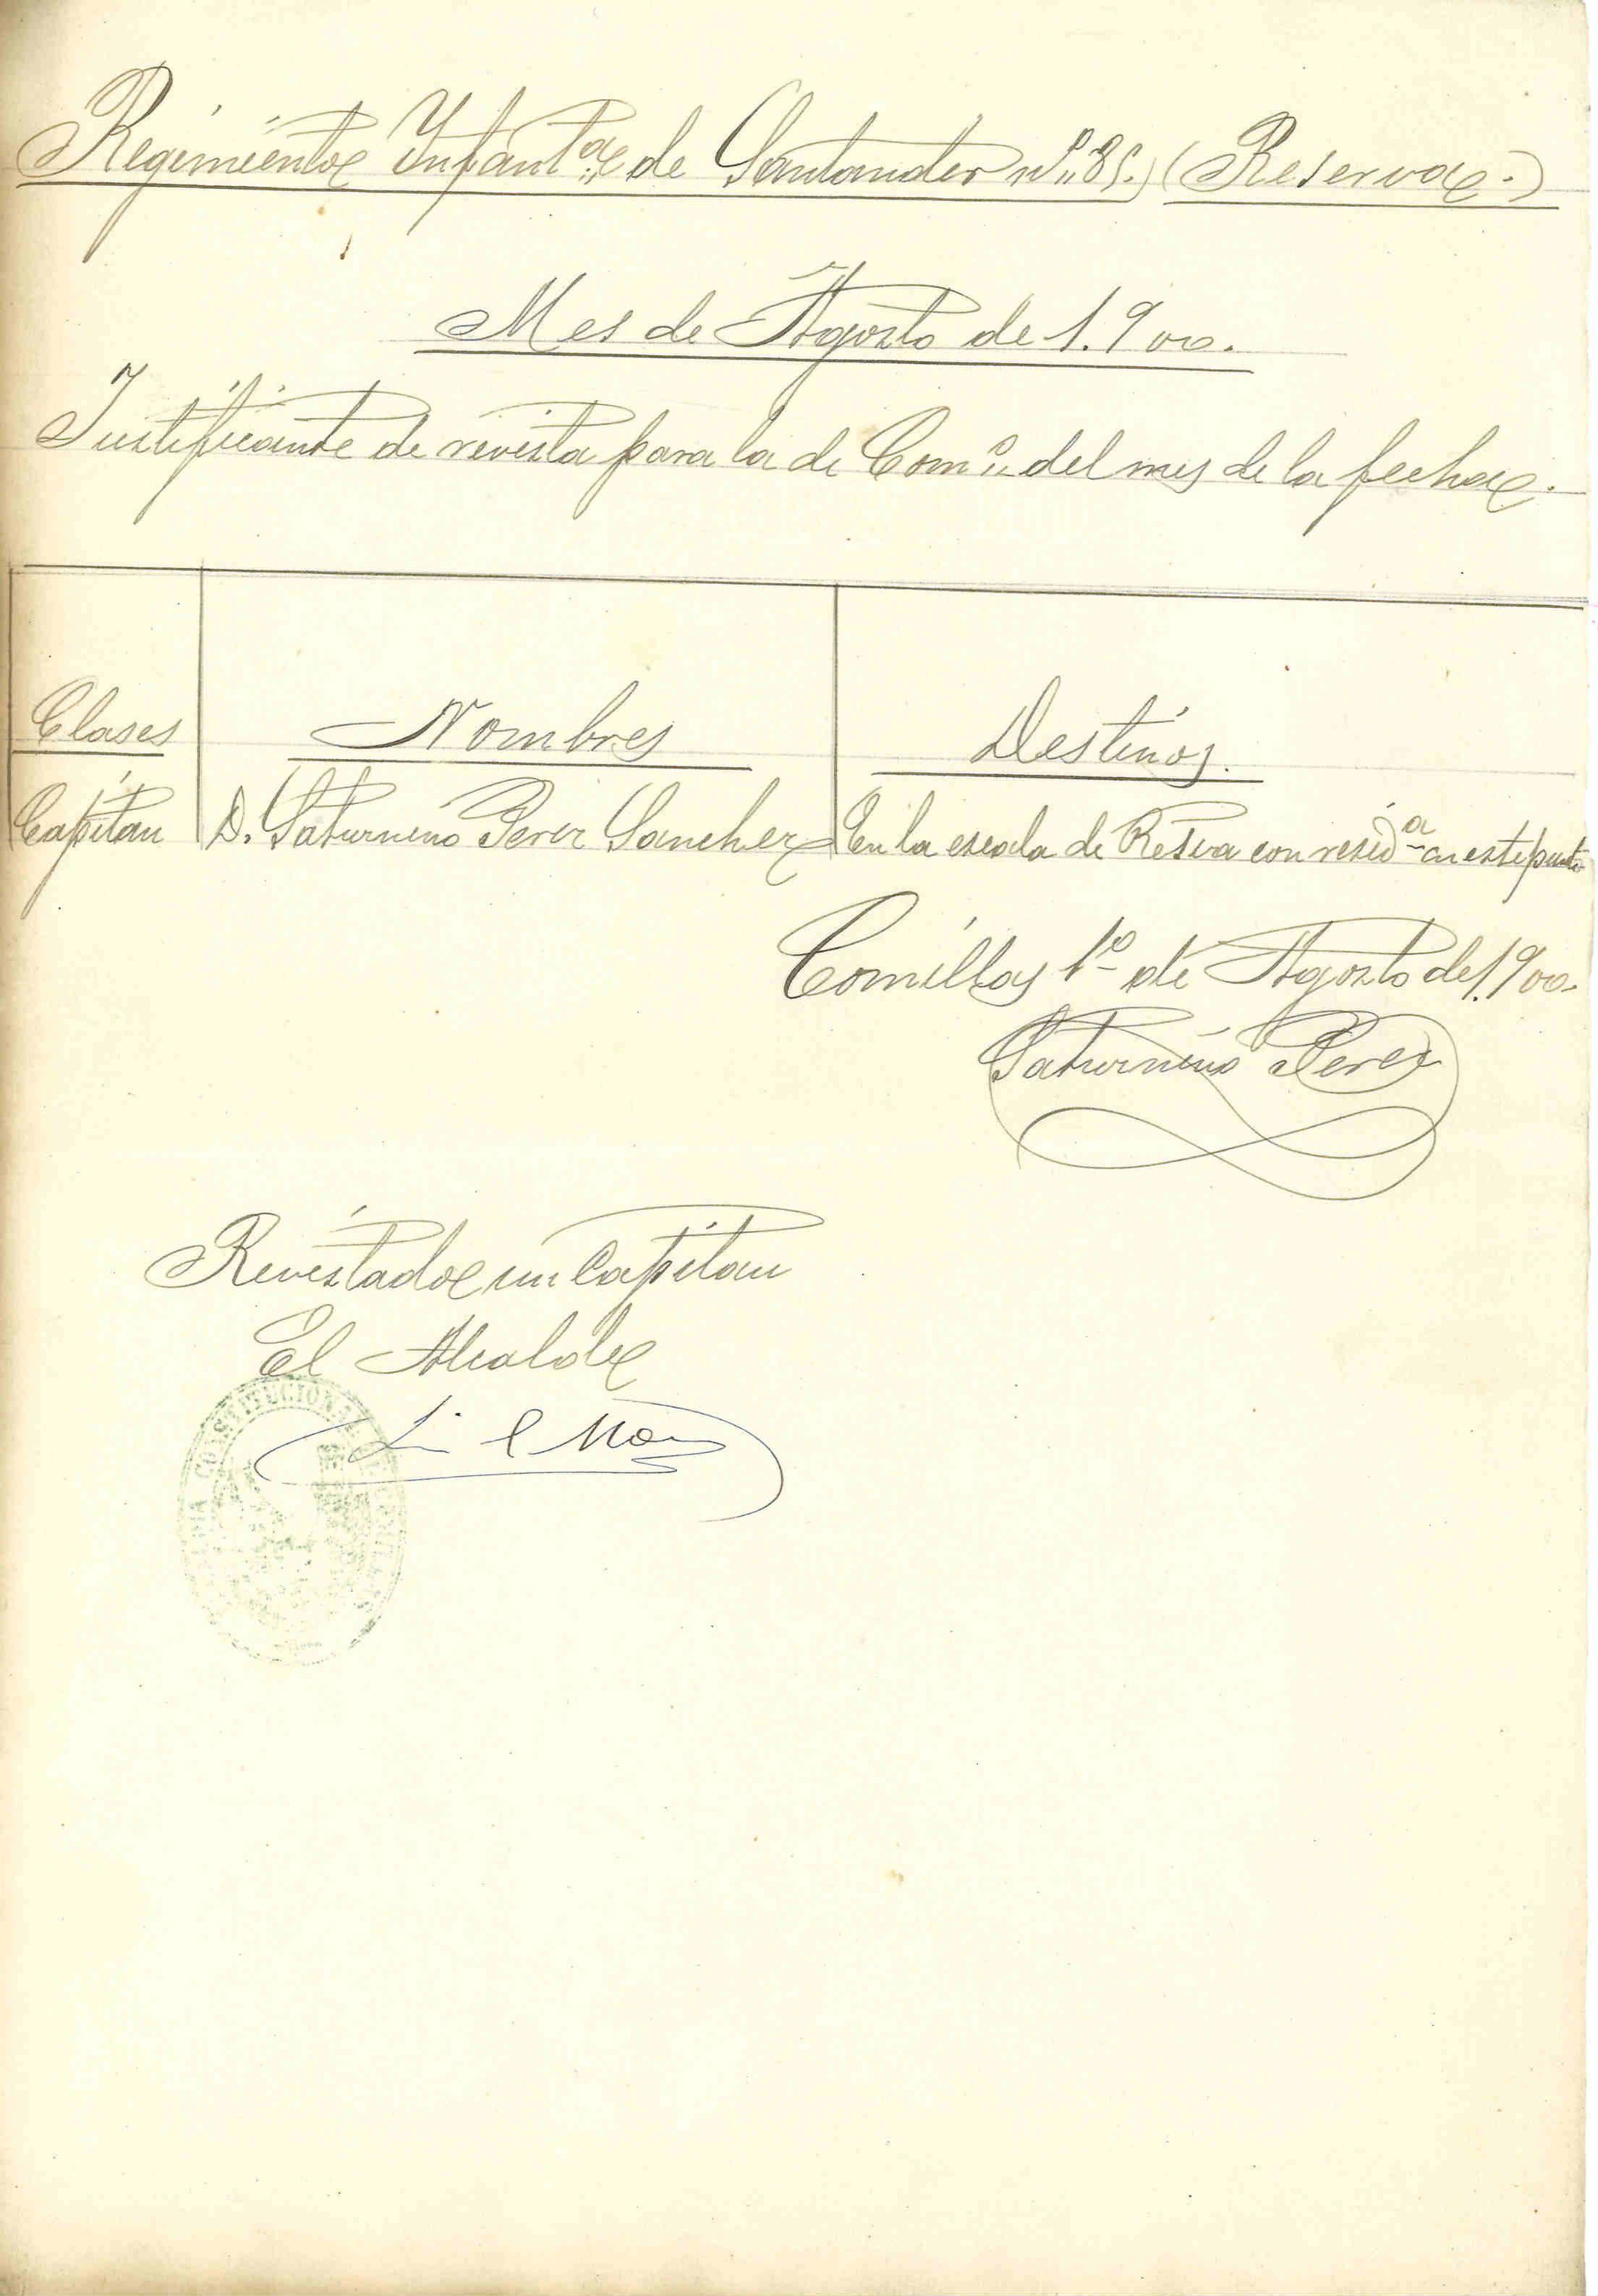 Regimiento Infant.ª de Santander nº 85. (Reserva.)
Mes de Agosto de 1.900.
Justificante de revista para la de Comº del mes de la fecha.
Clases Nombres Destinos.
Capitan D. Saturnino Perez Sanchez En la escala de Resva con resid.ª en este punto
Comillas 1º de Agosto de 1.900.
Saturnino Perez
Revistado un Capitan
El Alcalde
CONSTITUCIONAL